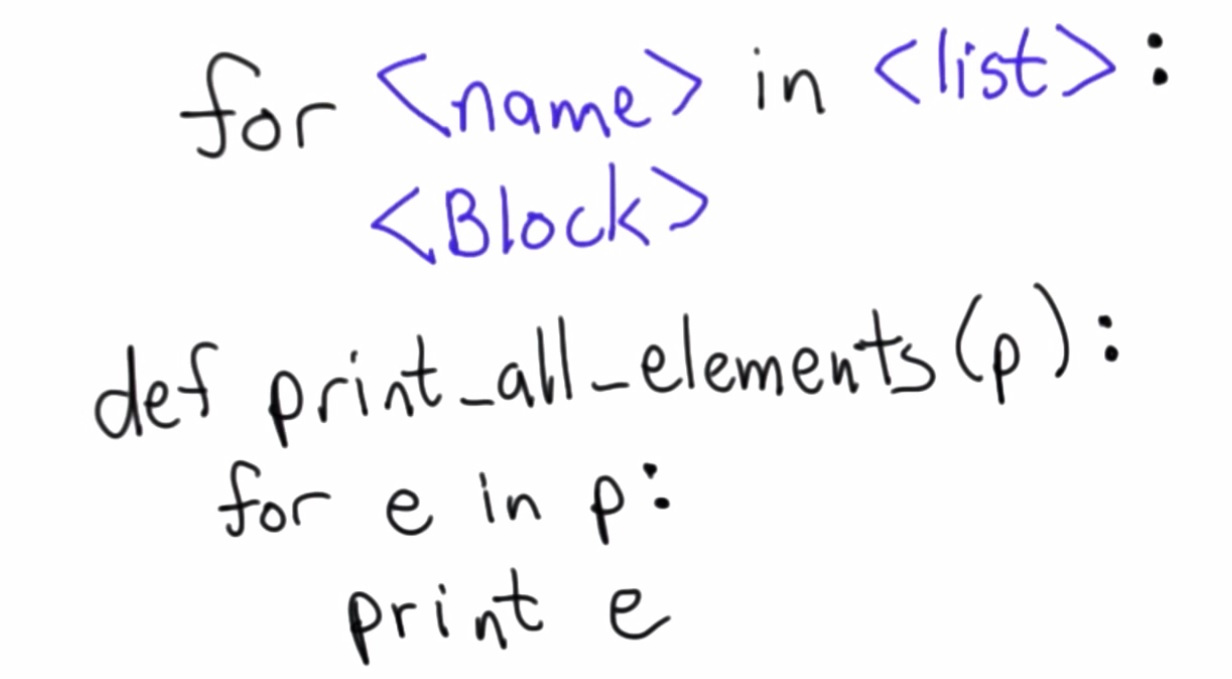 for <name> in <list>:
<Block>
def print_all_elements(p):
for e in p:
print e